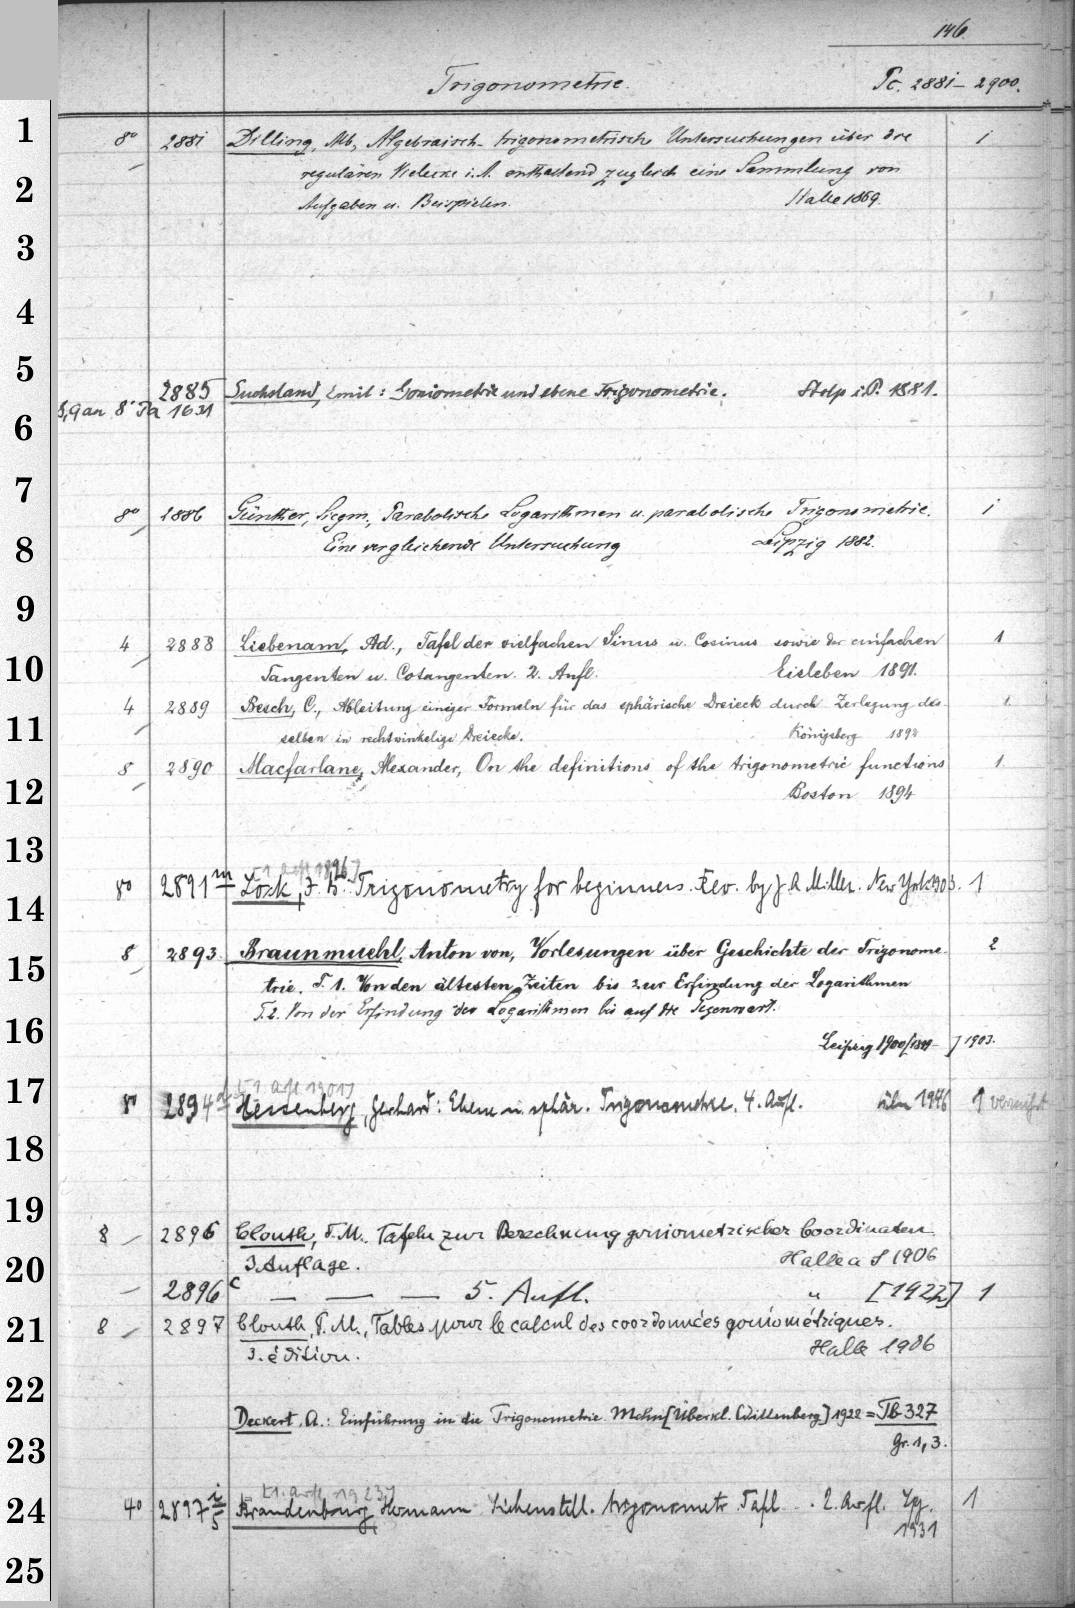 146.
Trigonometrie. Pc. 2881 - 2900.
1
8° 2881 Dilling, Alb, Algebraisch-trigonometrische Untersuchungen über die 1
2
regulären Vielecke i. A. enthaltend zugleich eine Sammlung von
Aufgaben u. Beispielen. Halle 1869.
3
4
5
2885 Suchsland, Emil: Goniometrie und ebene Trigonometrie. Stolp i. P. 1881.
8° Pa 1631
6
7
8° 2886 Günther, Siegm., Parabolische Logarithmen u. parabolische Trigonometrie. 1
8
Eine vergleichende Untersuchung Leipzig 1882.
9
4 2888 Liebenam, Ad., Tafel der vielfachen Sinus u. Cosinus sowie der einfachen 1
10
Tangenten u. Cotangenten. 2. Aufl. Eisleben 1891.
4 2889 Besch, C., Ableitung einiger Formeln für das sphärische Dreieck durch Zerlegung des- 1.
11
selben in rechtwinkelige Dreiecke. Königsberg
8 2890 Macfarlane, Alexander, On the definitions of the trigonometric functions 1
12
Boston 1894
13
[1 Aufl 1896]
8° 2891 m Lock, J. B. Trigonometry for beginners. Rev. by J. A. Miller. New York 1903. 1
14
8 2893 Braunmuehl, Anton von, Vorlesungen über Geschichte der Trigonome- 2
15
trie. T. 1. Von den ältesten Zeiten bis zur Erfindung der Logarithmen
T. 2. Von der Erfindung der Logarithmen bis auf die Gegenwart.
16
Leipzig 1900 [1899-] 1903.
17
[1 Aufl 1901]
8° 2894 Hessenberg, Gerhard: Ebene u. sphär. Trigonometrie. 4. Aufl. 1
18
19
8 2896 Clouth, F. M., Tafeln zur Berechnung goniometrischer Coordinaten
3. Auflage. Halle a S 1906
20
2896 c — — — 5. Aufl. " [1922] 1
21
8 2897 Clouth, F. M., Tables pour le calcul des coordonnées goniométriques.
3. édition. Halle 1906
22
Deckert, A.: Einführung in die Trigonometrie [Wittenberg] 1922 = Tb 327
23
Gr. 1, 3.
[1. Aufl. 1923]
24
4° 2897 i Brandenburg Hermann trigonometr. Tafl. 2. Aufl. Lpg. 1
5 1931
25